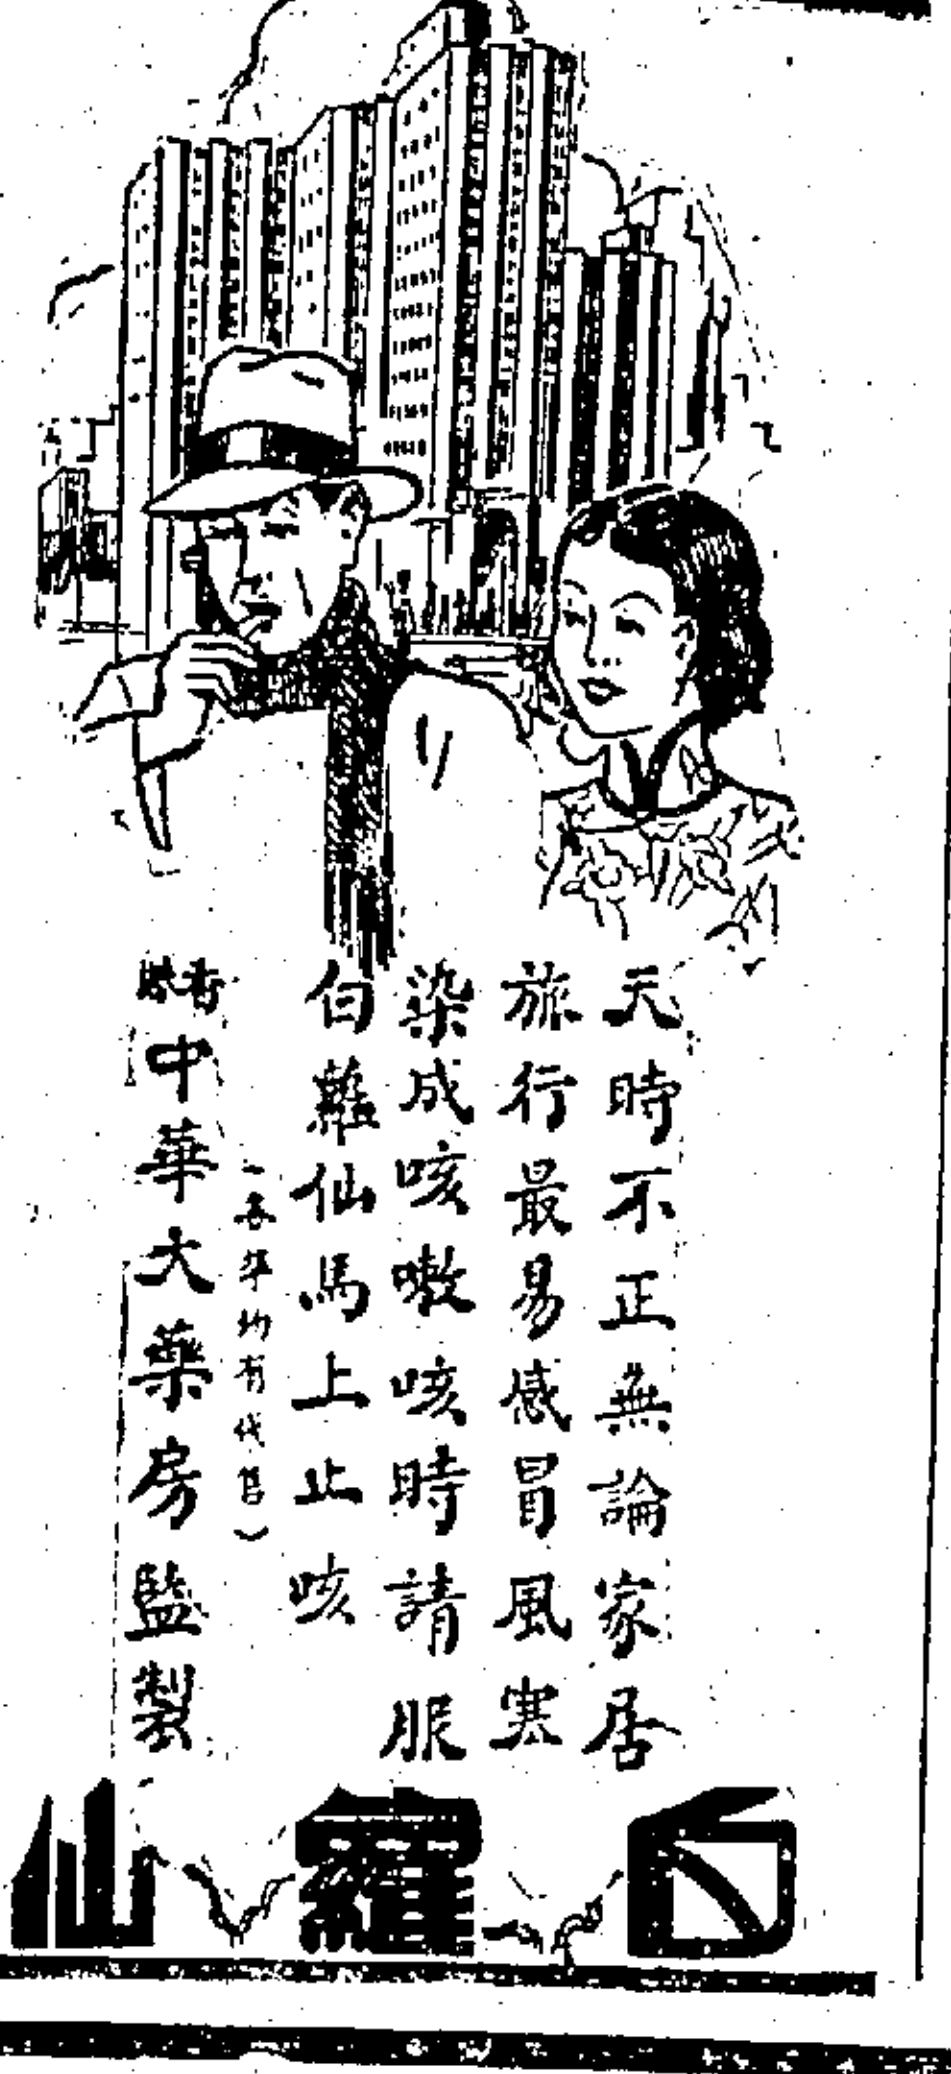 天時不正無論家居
旅行最易感冒風寒
染成咳嗽咳時請服
白蘿仙馬上止咳
(各藥均有代售)
香港
中華大藥房監製
白蘿仙